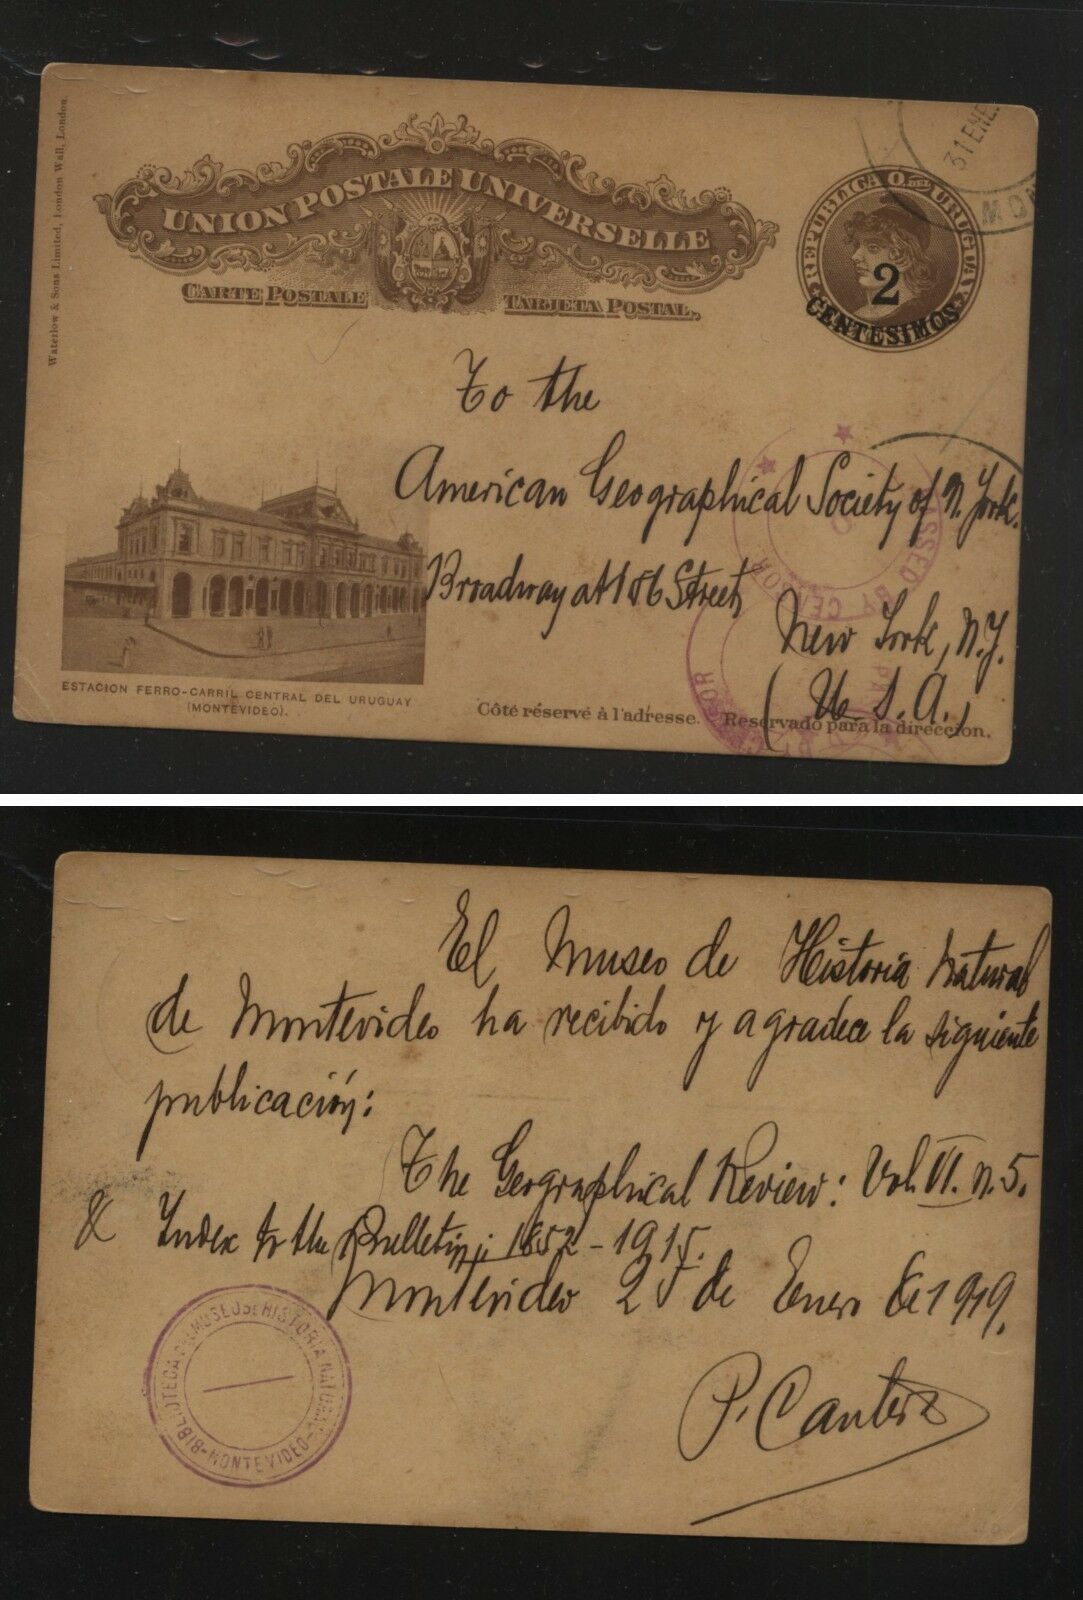 Waterlow & Sons Limited, London Wall, London.
UNION POSTALE UNIVERSELLE
CARTE POSTALE TARJETA POSTAL.
REPUBLICA O. DEL URUGUAY
2
CENTESIMOS
31 ENE.
To the
American Geographical Society of N. York.
Broadway at 156 Street,
New York, N.Y.
(U.S.A.)
PASSED BY CENSOR
ESTACION FERRO-CARRIL CENTRAL DEL URUGUAY
(MONTEVIDEO).
Côté réservé à l'adresse. Reservado para la dirección.
El Museo de Historia Natural
de Montevideo ha recibido y agradece la siguiente
publicación:
The Geographical Review: Vol. VI. n. 5.
& Index to the Bulletin: 1852-1915.
Montevideo 25 de Enero de 1919.
BIBLIOTECA DEL MUSEO DE HISTORIA NATURAL
MONTEVIDEO
P. Cantera